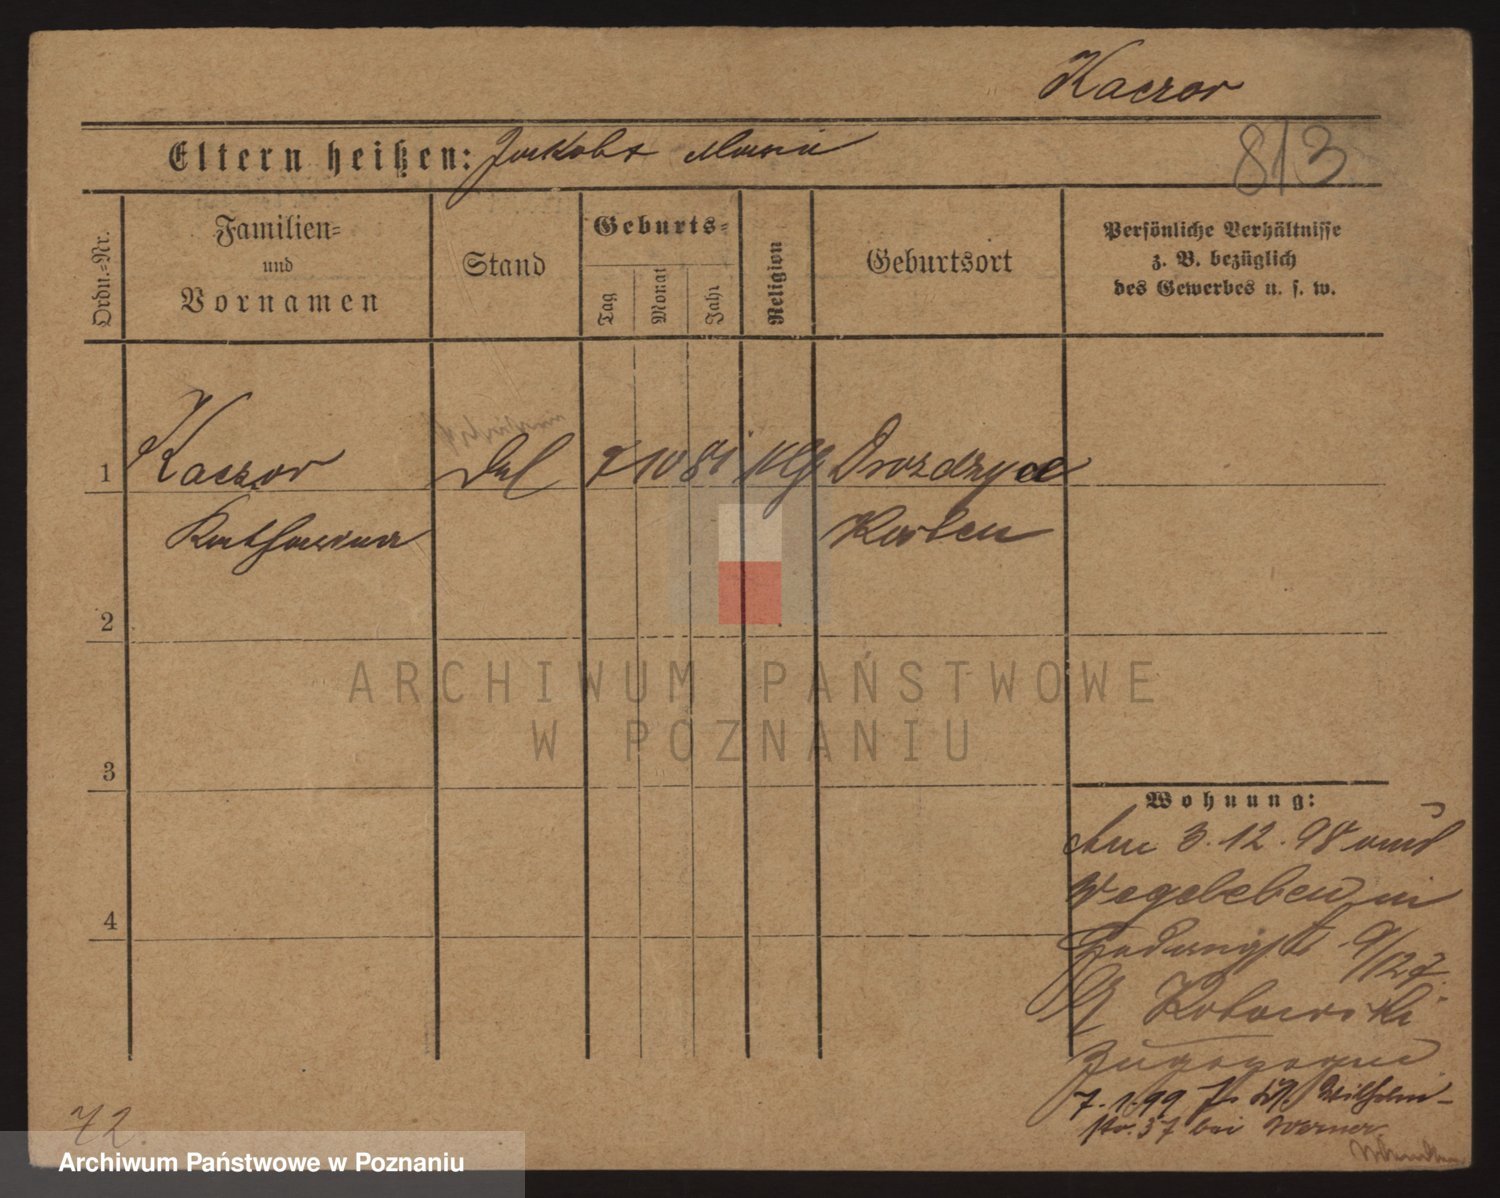 Kaczor
813
Eltern heißen: Jakobs Maria
Ordn.=Nr.
Familien=
und
Vornamen
Stand
Geburts=
Tag
Monat
Jahr
Religion
Geburtsort
Persönliche Verhältnisse
z. B. bezüglich
des Gewerbes u. s. w.
1 Kaczor 7 10 81 Drozdzyce
Katharina Kosten
2
3
4
Wohnung:
Am 3. 12. 98 aus
Wegeleben in
9/127
Kotowski
Zugezogen
7. 1. 99 Wilhelm-
str. 37 bei Werner
72.
ARCHIWUM PAŃSTWOWE
W POZNANIU
Archiwum Państwowe w Poznaniu